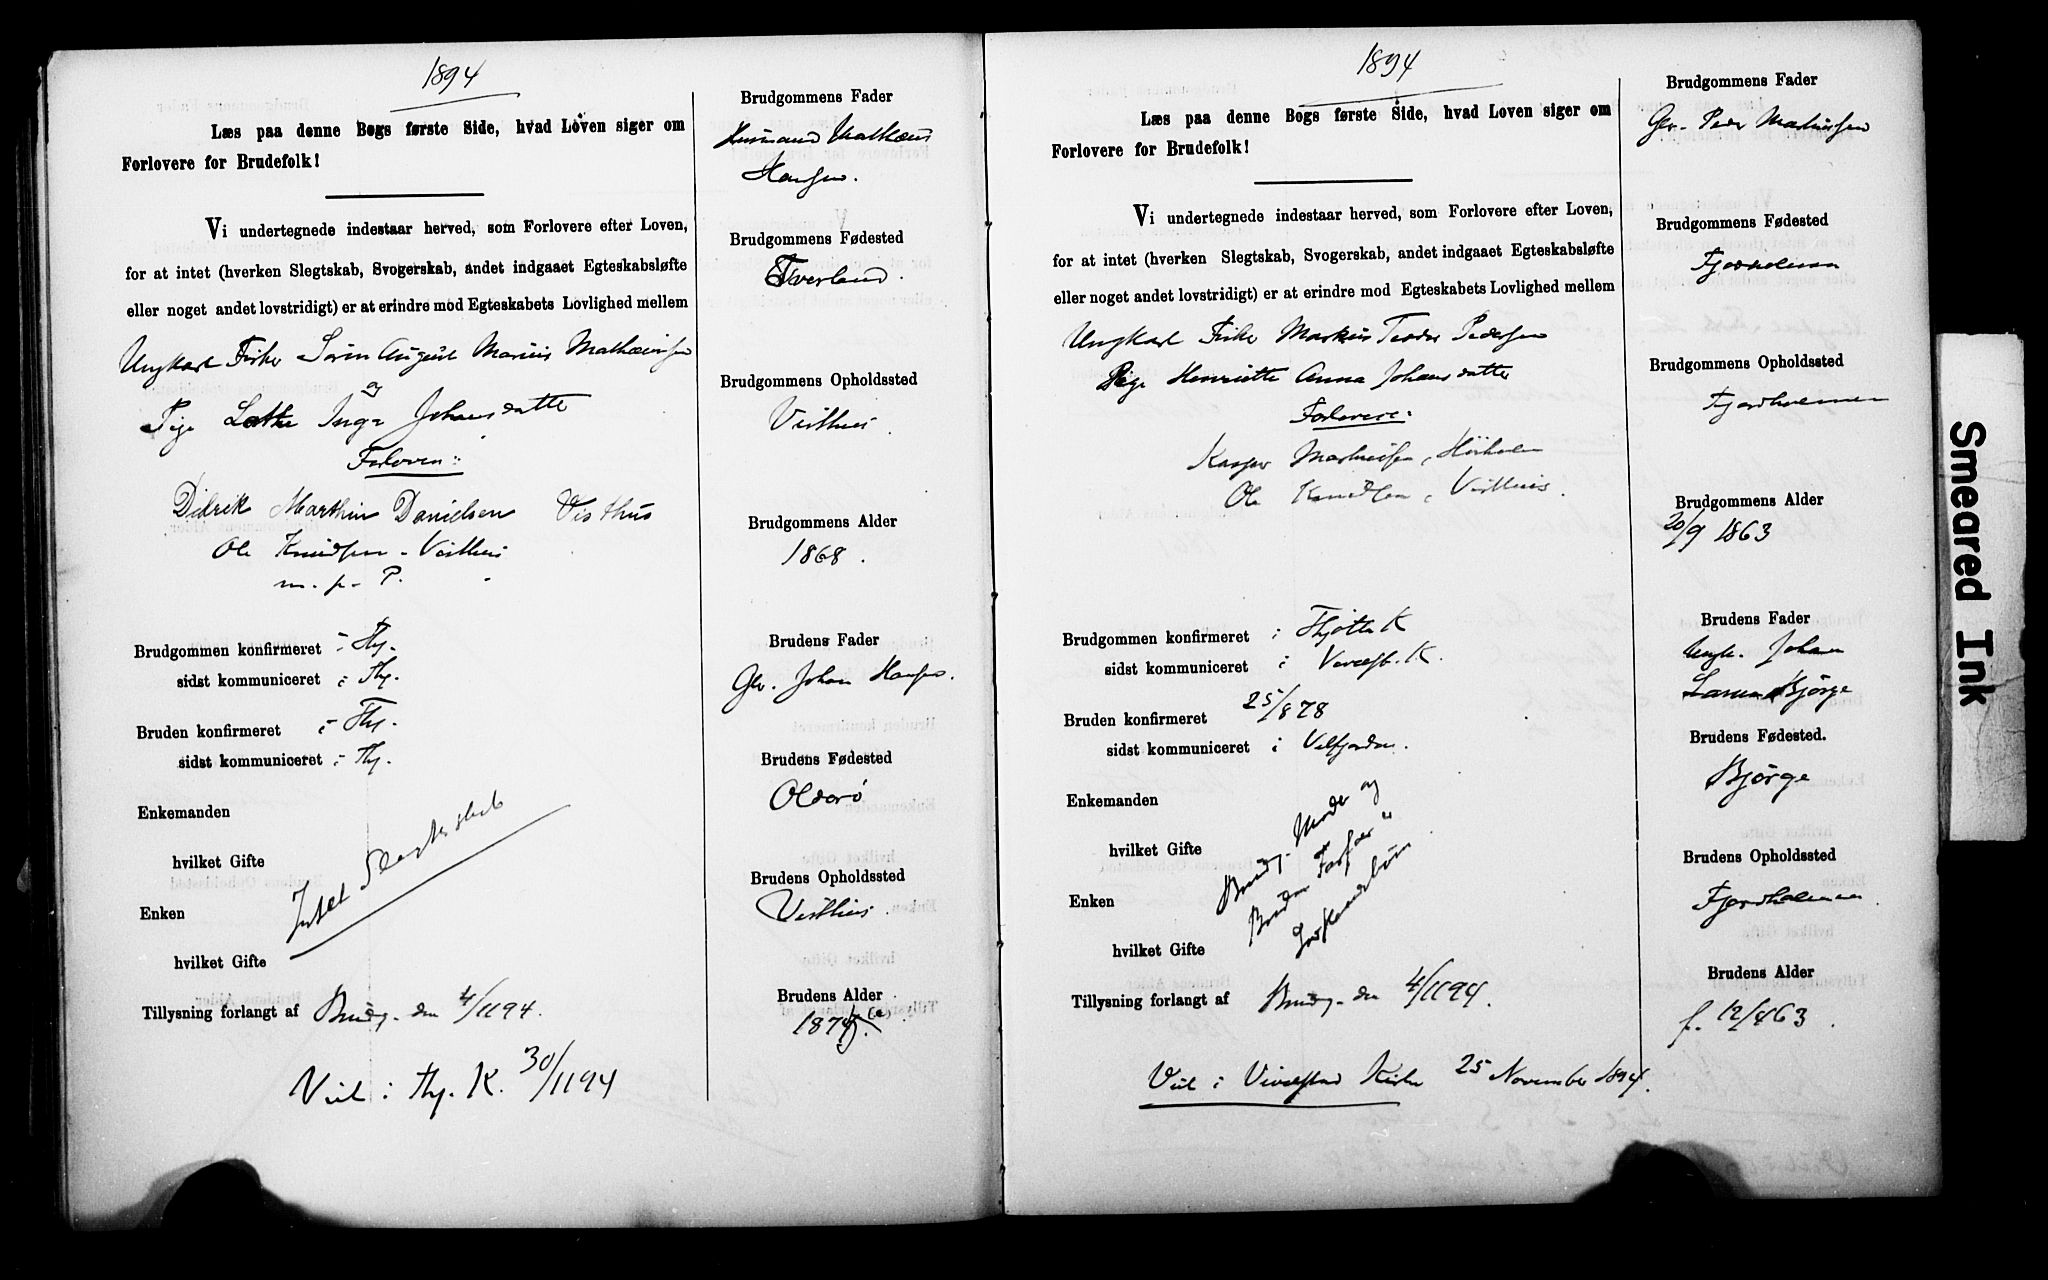 1894
Læs paa denne Bogs første Side, hvad Loven siger om
Forlovere for Brudefolk!
Vi undertegnede indestaar herved, som Forlovere efter Loven,
for at intet (hverken Slegtskab, Svogerskab, andet indgaaet Egteskabsløfte
eller noget andet lovstridigt) er at erindre mod Egteskabets Lovlighed mellem
Ungkarl Fisker Sørin August Marius Mathæussen
og
Pige Inga Johansdatter
Forlovere:
Didrik Marthin Danielsen Visthus
Ole Knudsen - Visthus
m. p. P.
Brudgommen konfirmeret i Thj.
sidst kommuniceret i Thj.
Bruden konfirmeret i Thj.
sidst kommuniceret i Thj.
Enkemanden
hvilket Gifte
Enken
hvilket Gifte
Intet Slegtskab
Tillysning forlangt af Brudg. den 4/11 94.
Viet i Thj. K. 30/11 94
Brudgommens Fader
Husmand Mathæus
Hansen.
Brudgommens Fødested
Tverland.
Brudgommens Opholdssted
Visthus
Brudgommens Alder
1868.
Brudens Fader
Gbr. Johan Hansen.
Brudens Fødested
Olderø
Brudens Opholdssted
Visthus.
Brudens Alder
1894
Læs paa denne Bogs første Side, hvad Loven siger om
Forlovere for Brudefolk!
Vi undertegnede indestaar herved, som Forlovere efter Loven,
for at intet (hverken Slegtskab, Svogerskab, andet indgaaet Egteskabsløfte
eller noget andet lovstridigt) er at erindre mod Egteskabets Lovlighed mellem
Ungkarl Fisker Markus Teodor Pedersen
Pige Henriette Anna Johansdatter
Forlovere:
Kasper Martinsen, Hørholm
Ole Knudsen, Visthus.
Brudgommen konfirmeret i Thjøttø K
sidst kommuniceret i Vevelst. K.
Bruden konfirmeret 25/8 78
sidst kommuniceret i Velfjorden.
Enkemanden
hvilket Gifte
Enken
hvilket Gifte
Brudg. Moder og
Brudens Farfar er
Sødskendebørn
Tillysning forlangt af Brudg. den 4/11 94.
Viet i Vevelstad Kirke 25 November 1894.
Brudgommens Fader
Gbr. Peder Martinssen
Brudgommens Fødested
Fjordholmen
Brudgommens Opholdssted
Fjordholmen
Brudgommens Alder
20/9 1863
Brudens Fader
Ungk. Johan
Bjørge
Brudens Fødested.
Bjørge
Brudens Opholdssted
Fjordholmen
Brudens Alder
f. 12/4 63.
Smeared Ink